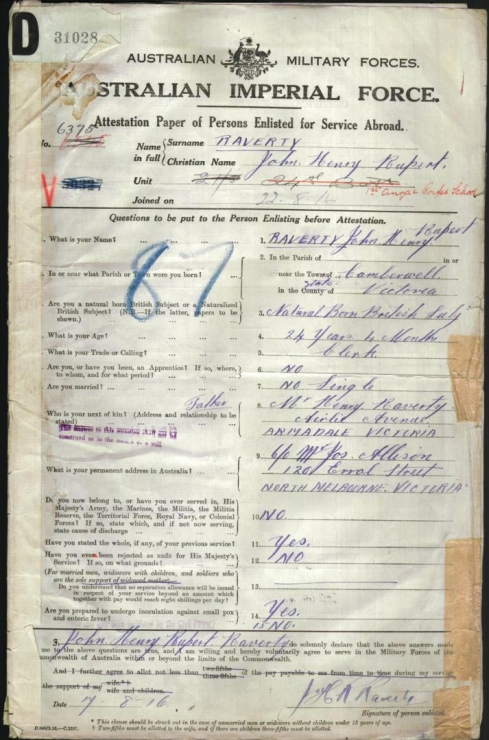 D 31028
AUSTRALIAN MILITARY FORCES.
AUSTRALIAN IMPERIAL FORCE.
Attestation Paper of Persons Enlisted for Service Abroad.
6376
No. Name in full { Surname RAVERTY
Christian Name John Henry Rupert.
Unit
Joined on 22-8-16
Questions to be put to the Person Enlisting before Attestation.
1. What is your Name? ... 1. RAVERTY John Henry Rupert
2. In or near what Parish or Town were you born? ... 2. In the Parish of in or
near the Town of Camberwell
in the County of State Victoria
87
3. Are you a natural born British Subject or a Naturalized
British Subject? (N.B.—If the latter, papers to be
shown.) 3. Natural Born British Subj
4. What is your Age? ... 4. 24 Years 6 Months
5. What is your Trade or Calling? ... 5. Clerk
6. Are you, or have you been, an Apprentice? If so, where,
to whom, and for what period? 6. NO
7. Are you married? ... 7. NO. Single
8. Who is your next of kin? (Address and relationship to be
stated) Father 8. Mr Henry Raverty
Avenue,
ARMADALE VICTORIA
9. What is your permanent address in Australia? ... 9. c/o Mr Jos. Allison
120 Errol Street
NORTH MELBOURNE. VICTORIA
10. Do you now belong to, or have you ever served in, His
Majesty's Army, the Marines, the Militia, the Militia
Reserve, the Territorial Force, Royal Navy, or Colonial
Forces? If so, state which, and if not now serving,
state cause of discharge ... 10. NO.
11. Have you stated the whole, if any, of your previous service? 11. Yes.
12. Have you ever been rejected as unfit for His Majesty's
Service? If so, on what grounds? 12. NO
13. (For married men, widowers with children, and soldiers who
are the sole support of widowed mother)—
Do you understand that no separation allowance will be issued
in respect of your service beyond an amount which
together with pay would reach eight shillings per day? 13.
14. Are you prepared to undergo inoculation against small pox
and enteric fever? 14. Yes.
15 NO.
3. I, John Henry Rupert Raverty do solemnly declare that the above answers made
by me to the above questions are true, and I am willing and hereby voluntarily agree to serve in the Military Forces of the
Commonwealth of Australia within or beyond the limits of the Commonwealth.
And I further agree to allot not less than two-fifths three-fifths of the pay payable to me from time to time during my service
the support of my wife.* † wife and children.
Date 7-8-16. J H R Raverty
Signature of person enlisted.
* This clause should be struck out in the case of unmarried men or widowers without children under 18 years of age.
† Two-fifths must be allotted to the wife, and if there are children three-fifths must be allotted.